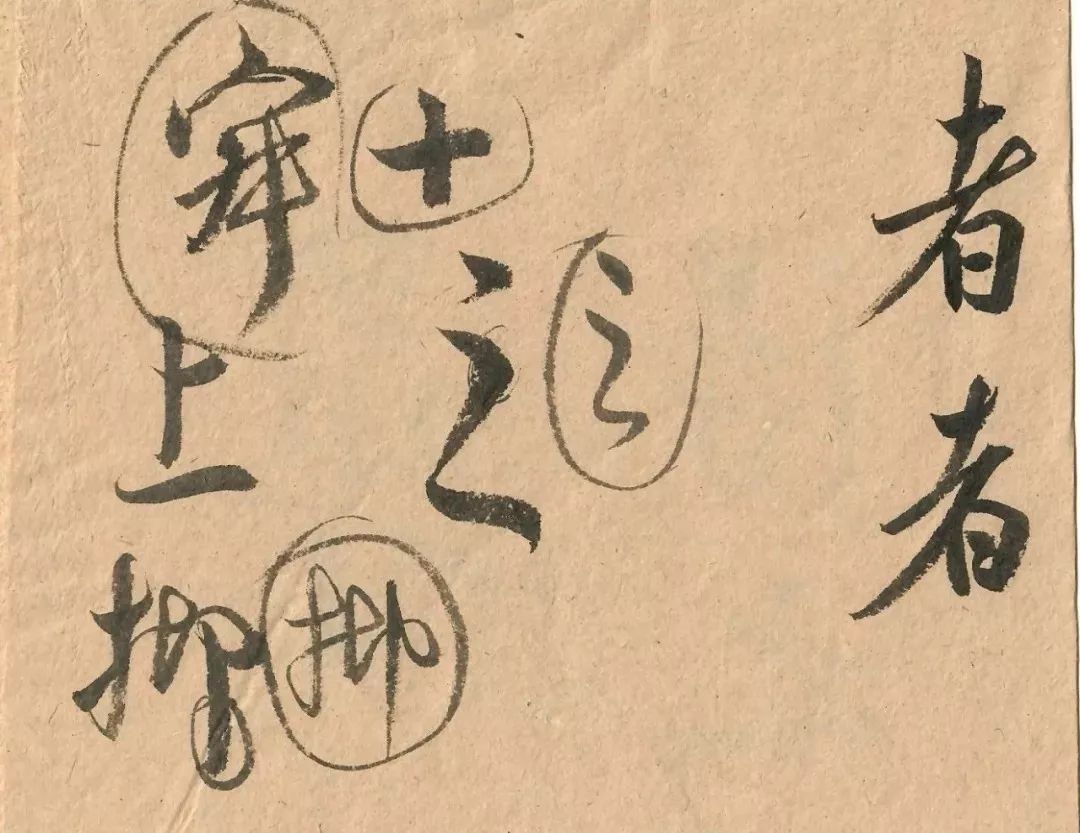 者者
之
十
之
上抑
抑